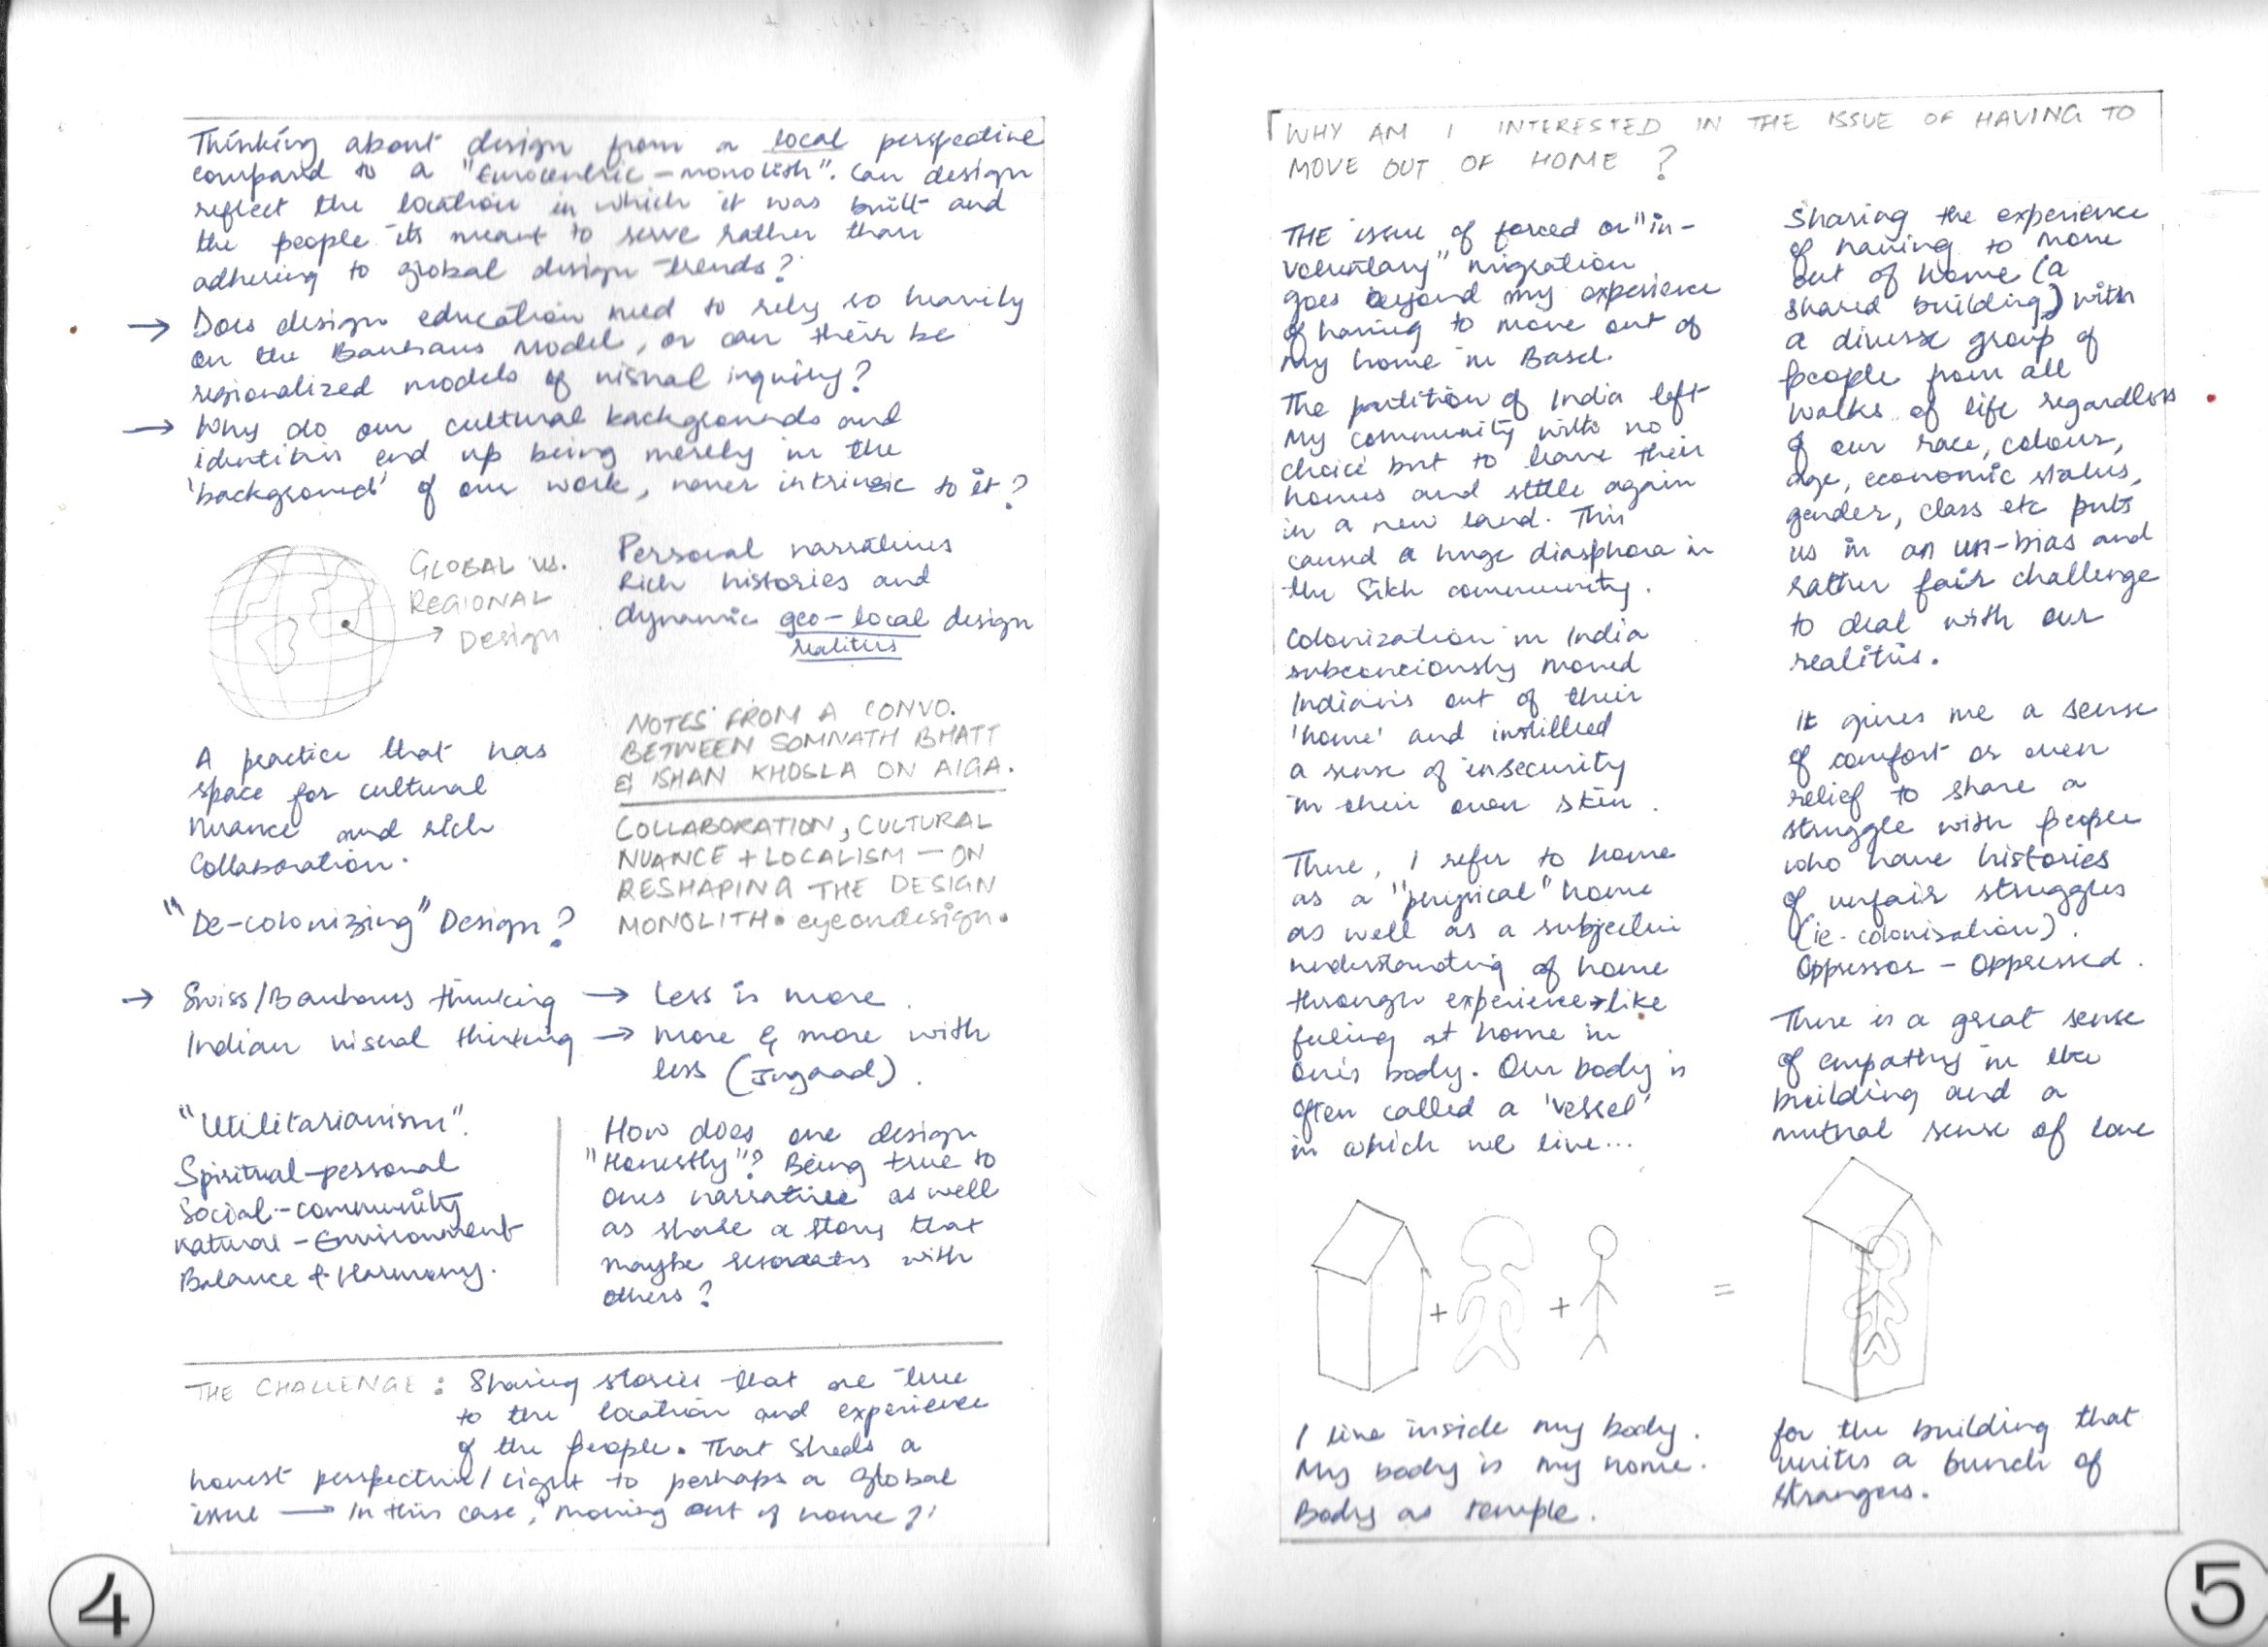 Thinking about design from a local perspective
compared to a "Eurocentric-monolith". Can design
reflect the location in which it was built and
the people its meant to serve rather than
adhering to global design trends?
→ Does design education need to rely so heavily
on the Bauhaus Model, or can their be
regionalized models of visual inquiry?
→ Why do our cultural backgrounds and
identities end up being merely in the
'background' of our work, never intrinsic to it?
GLOBAL vs.
REGIONAL
→ Design
Personal narratives
Rich histories and
dynamic geo-local design
realities
A practice that has
space for cultural
nuance and rich
Collaboration.
"De-colonizing" Design?
NOTES FROM A CONVO.
BETWEEN SOMNATH BHATT
& ISHAN KHOSLA ON AIGA.
COLLABORATION, CULTURAL
NUANCE + LOCALISM — ON
RESHAPING THE DESIGN
MONOLITH. eyeondesign.
→ Swiss/Bauhaus thinking → Less is more.
Indian visual thinking → more & more with
less (Jugaad).
"Utilitarianism".
Spiritual-personal
Social-community
Natural - Environment
Balance & Harmony.
How does one design
"Honestly"? Being true to
ones narrative as well
as share a story that
maybe resonates with
others?
THE CHALLENGE: Sharing stories that are true
to the location and experience
of the people. That sheds a
honest perspective/light to perhaps a global
issue → In this case, 'moving out of home?'
4
WHY AM I INTERESTED IN THE ISSUE OF HAVING TO
MOVE OUT OF HOME?
THE issue of forced or "in-
voluntary" migration
goes beyond my experience
of having to move out of
my home in Basel.
The partition of India left
my community with no
choice but to leave their
homes and settle again
in a new land. This
caused a huge diasphora in
the Sikh community.
Colonization in India
subconciously moved
Indians out of their
'home' and instilled
a sense of insecurity
in their own skin.
There, I refer to home
as a "physical" home
as well as a subjective
understanding of home
through experiences like
feeling at home in
one's body. Our body is
often called a 'vessel'
in which we live...
+ + =
I live inside my body.
My body is my home.
Body as temple.
Sharing the experience
of having to move
out of home (a
shared building) with
a diverse group of
people from all
walks of life regardless
of our race, colour,
age, economic status,
gender, class etc puts
us in an un-bias and
rather fair challenge
to deal with our
realities.
It gives me a sense
of comfort or even
relief to share a
struggle with people
who have histories
of unfair struggles
(ie. colonisation).
Oppressor - Oppressed.
There is a great sense
of empathy in the
building and a
mutual sense of love
for the building that
unites a bunch of
strangers.
5